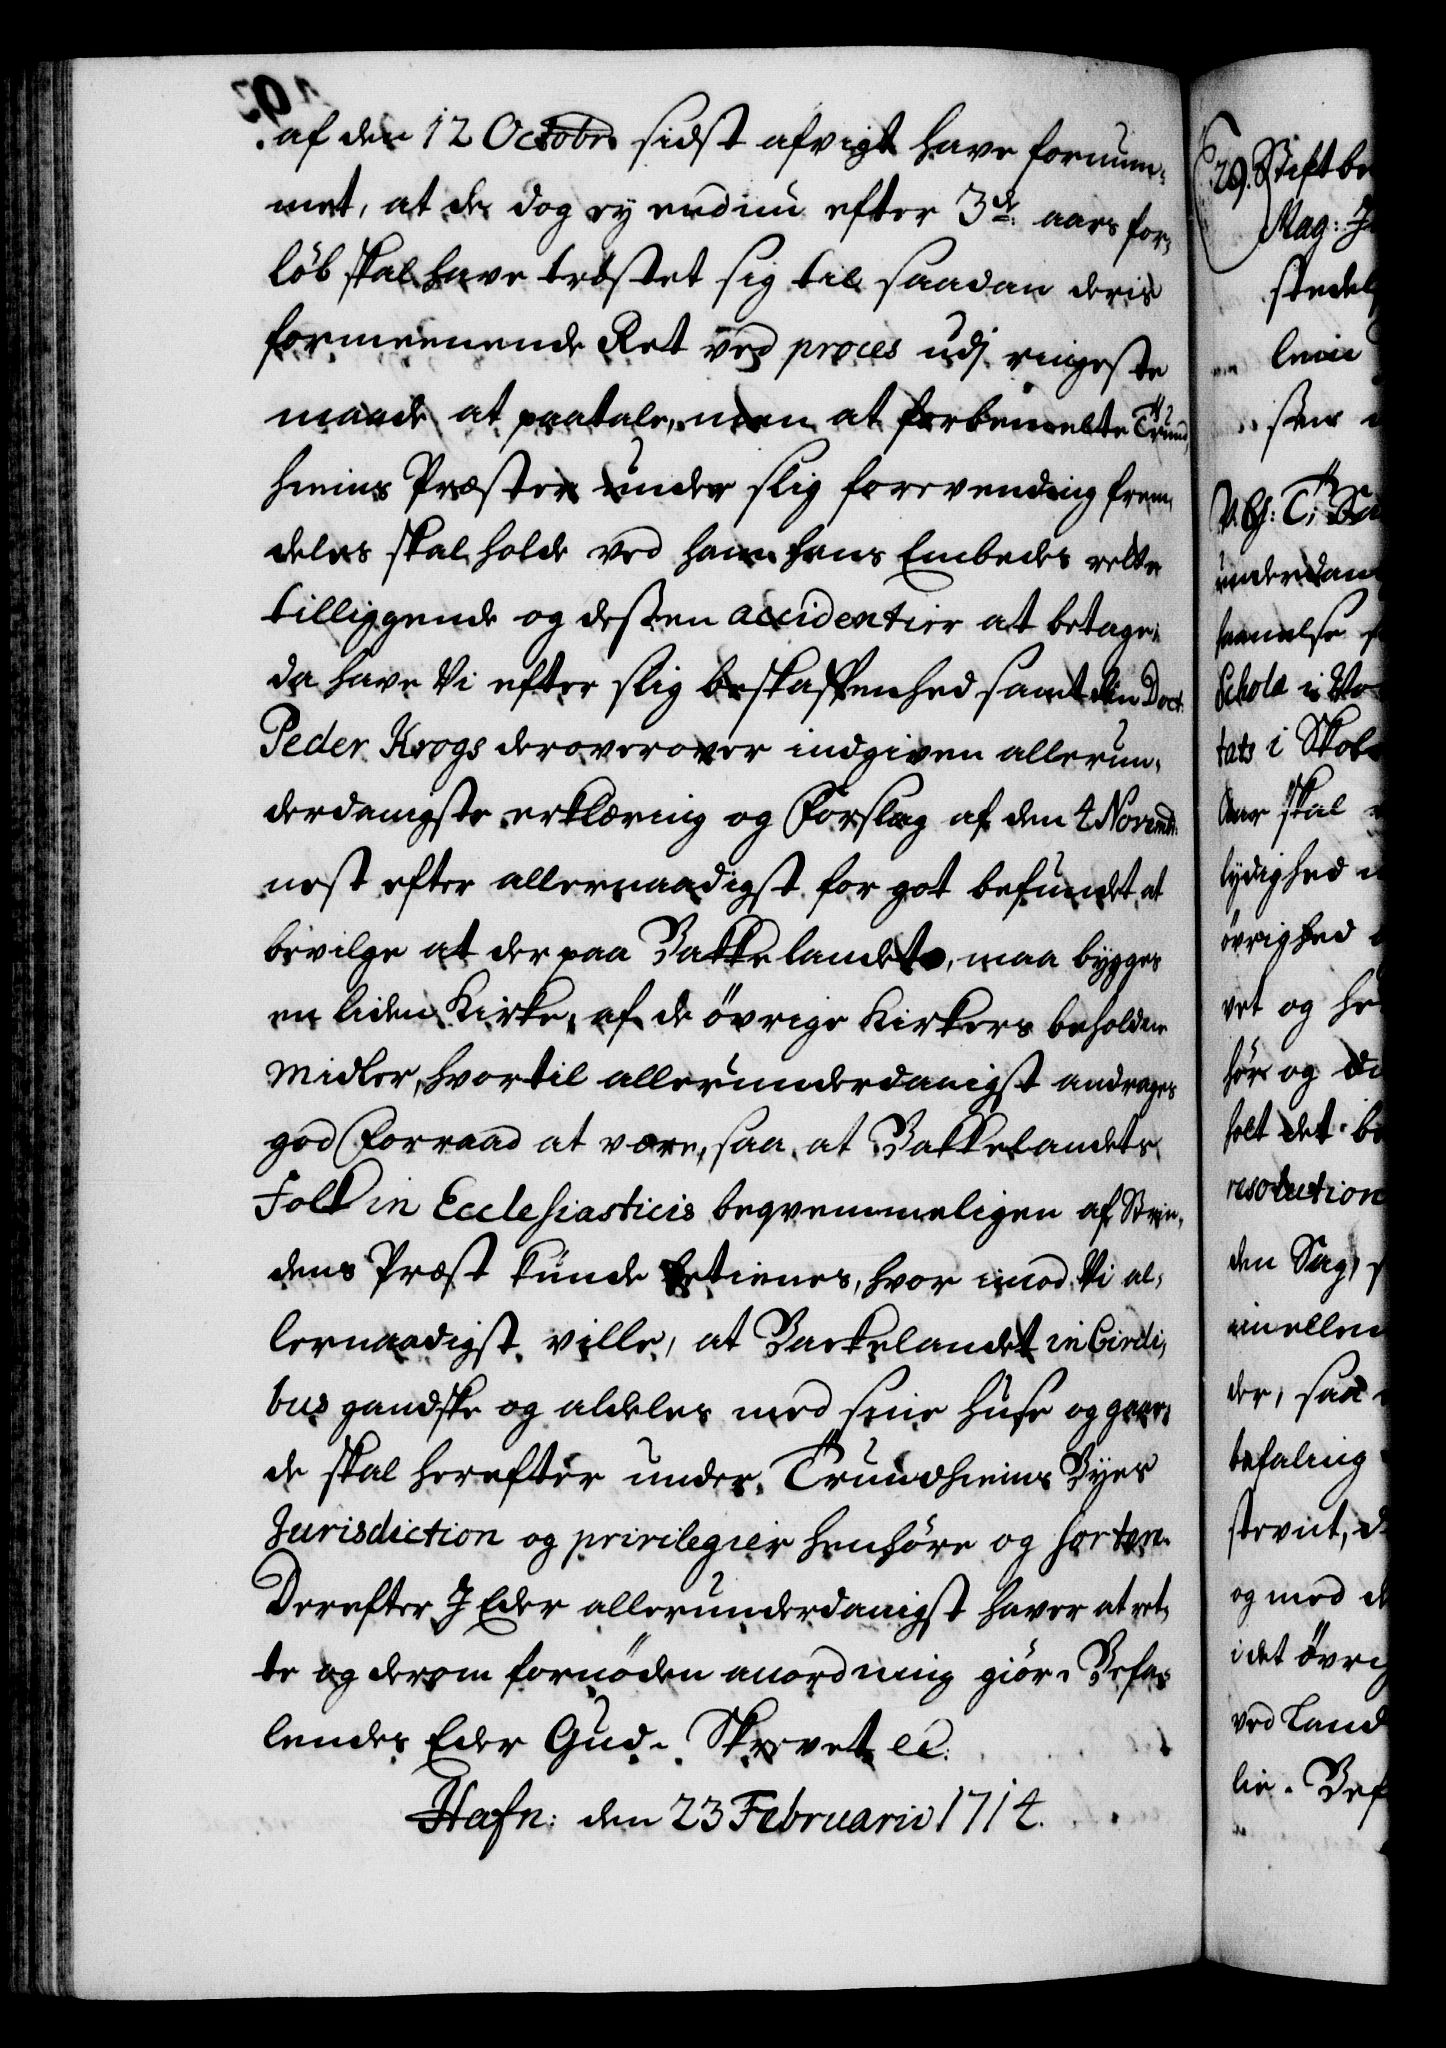 af den 12 Octobr: sidst afvigt have fornum-
met, at de dog ey endnu efter 3de: aars for-
löb skal have tröstet sig til saadan deris
formeenende Ret ved proces udj ringeste
maade at paatale, men at forbemelte Trund-
hiems Præster under slig forevending frem-
deles skal holde ved ham hans Embedes rette
tilliggende og dessen accidentier at betage;
da have Vi efter slig beskaffenhed samt din Doct:
Peder Krogs deroverover indgiven allerun-
derdanigste erklæring og Forslag af den 4 Novembr:
nest efter allernaadigst for got befundet at
bevilge at der paa Bakkelandet, maa bygges
en liden Kirke, af de övrige Kirkers beholdne
Midler, hvortil allerunderdanigst andrages
god Forraad at være, saa at Bakkelandets
Folk in Ecclesiasticis beqvemmeligen af Strin-
dens Præst kunde betienes, hvor imod Vi al-
lernaadigst ville, at Backelandet in Civili-
bus gandske og aldeles med sine Huse og gaar-
de skal herefter under Trundhiems Byes
Jurisdiction og privilegier henhöre og sortere.
Derefter I Eder allerunderdanigst haver at ret-
te og derom fornöden anordning giöre. Befa-
lendes Eder Gud. Skrevet etc:
Hafn: den 23 Februarii 1714.
29. Stiftbe
Mag: J
underdan
Schola i
tats i Skole
Aar skal
lydighed
övrighed
vet og he
hör og
holt det be
resolution
den Sag,
imellem
der, saa
befaling
og med de
i det övrig
ved Land
lie. Bef